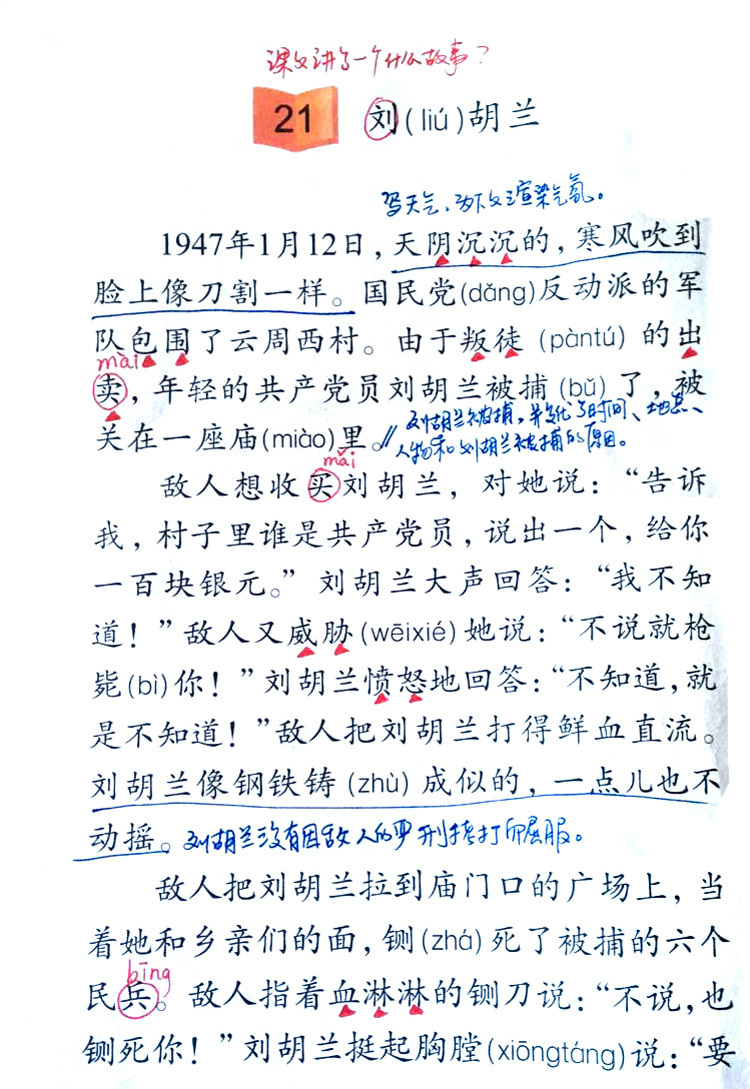 课文讲了一个什么故事？
21 刘(liú)胡兰
写天气，为下文渲染气氛。
1947年1月12日，天阴沉沉的，寒风吹到
脸上像刀割一样。国民党(dǎng)反动派的军
队包围了云周西村。由于叛徒 (pàntú) 的出
mài
卖，年轻的共产党员刘胡兰被捕 (bǔ) 了，被
关在一座庙(miào)里。
刘胡兰被捕，并交代了时间、地点、
人物和刘胡兰被捕的原因。
mǎi
敌人想收买刘胡兰，对她说：“告诉
我，村子里谁是共产党员，说出一个，给你
一百块银元。”刘胡兰大声回答：“我不知
道！”敌人又威胁(wēixié)她说：“不说就枪
毙(bì)你！”刘胡兰愤怒地回答：“不知道，就
是不知道！”敌人把刘胡兰打得鲜血直流。
刘胡兰像钢铁铸 (zhù) 成似的，一点儿也不
动摇。刘胡兰没有因敌人的严刑拷打而屈服。
敌人把刘胡兰拉到庙门口的广场上，当
着她和乡亲们的面，铡(zhá)死了被捕的六个
bīng
民兵。敌人指着血淋淋的铡刀说：“不说，也
铡死你！”刘胡兰挺起胸膛(xiōngtáng)说：“要